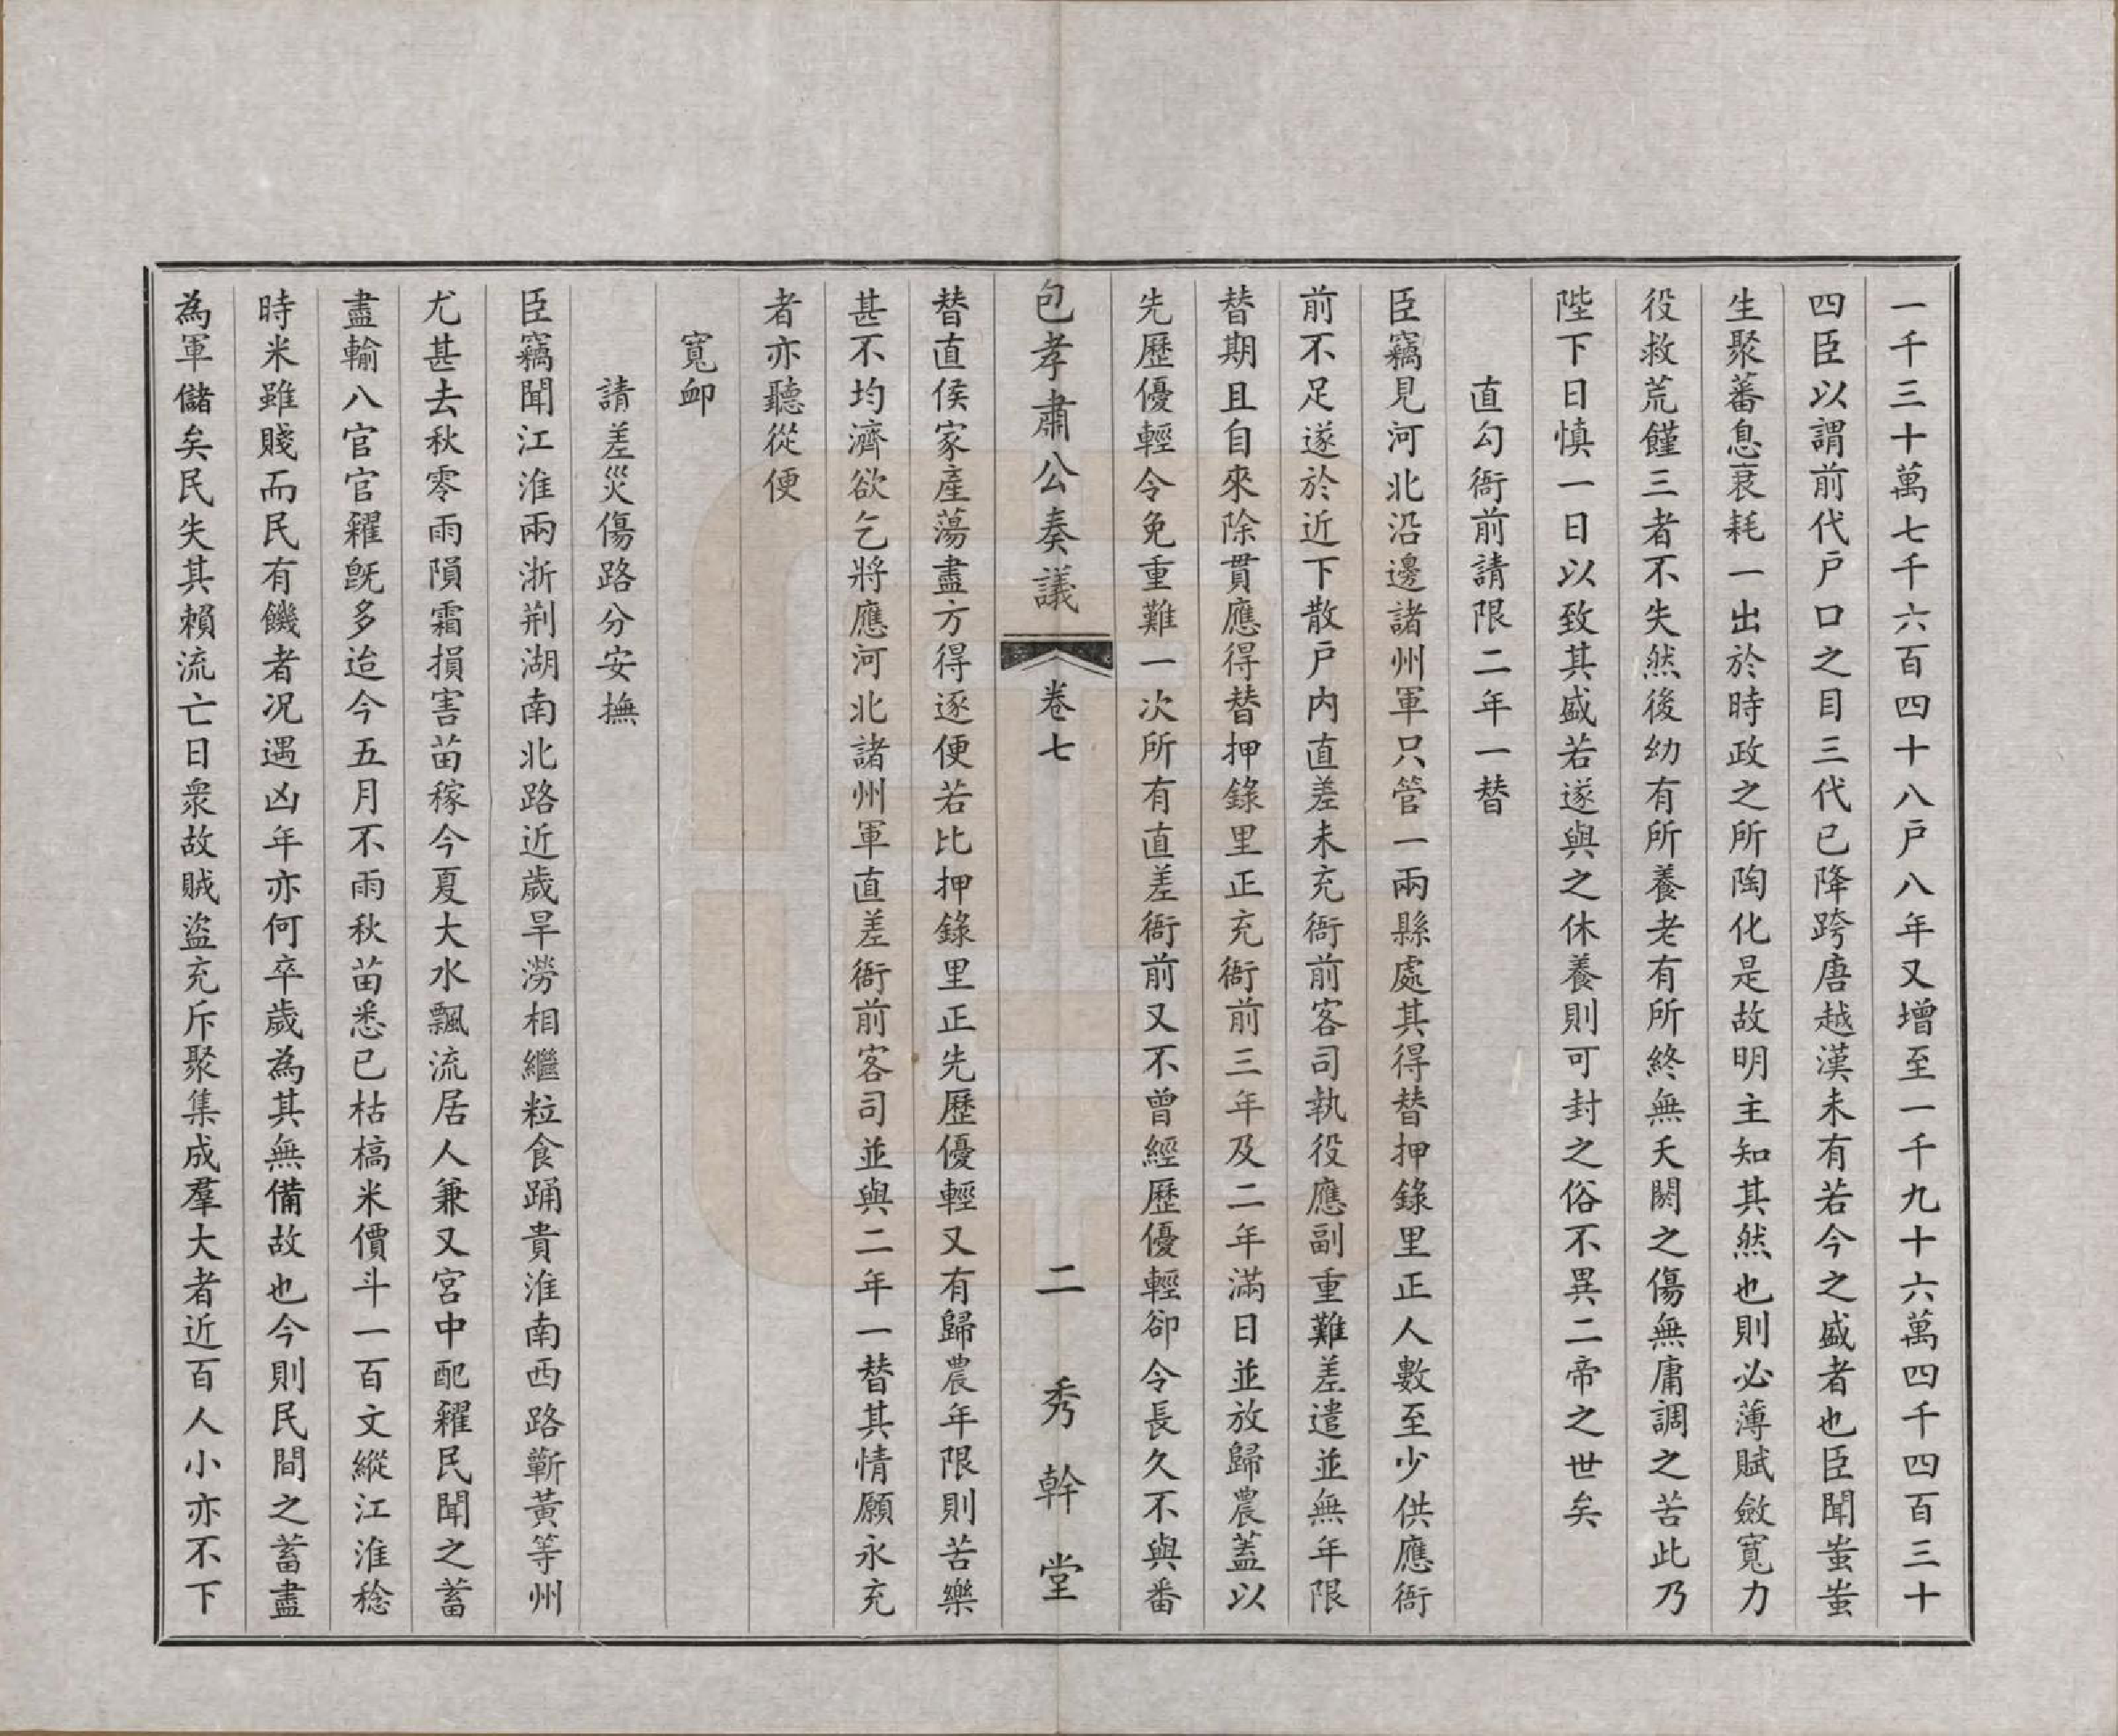 一千三十萬七千六百四十八戸八年又增至一千九十六萬四千四百三十
四臣以謂前代戸口之目三代已降跨唐越漢未有若今之盛者也臣聞蚩蚩
生聚蕃息衰耗一出於時政之所陶化是故明主知其然也則必薄賦斂寬力
役救荒饉三者不失然後幼有所養老有所終無夭閼之傷無庸調之苦此乃
陛下日慎一日以致其盛若遂與之休養則可封之俗不異二帝之世矣
直勾衙前請限二年一替
臣竊見河北沿邊諸州軍只管一兩縣處其得替押錄里正人數至少供應衙
前不足遂於近下散戸內直差未充衙前客司執役應副重難差遣並無年限
替期且自來除貫應得替押錄里正充衙前三年及二年滿日並放歸農蓋以
先歷優輕令免重難一次所有直差衙前又不曾經歷優輕卻令長久不與番
包孝肅公奏議 卷七 二 秀幹堂
替直侯家產蕩盡方得逐便若比押錄里正先歷優輕又有歸農年限則苦樂
甚不均濟欲乞將應河北諸州軍直差衙前客司並與二年一替其情願永充
者亦聽從便
寬卹
請差災傷路分安撫
臣竊聞江淮兩浙荆湖南北路近歲旱澇相繼粒食踊貴淮南西路蘄黃等州
尤甚去秋零雨隕霜損害苗稼今夏大水飄流居人兼又宮中配糴民聞之蓄
盡輸八官官糴旣多迨今五月不雨秋苗悉已枯槁米價斗一百文縱江淮稔
時米雖賤而民有饑者况遇凶年亦何卒歲為其無備故也今則民間之蓄盡
為軍儲矣民失其賴流亡日衆故賊盜充斥聚集成羣大者近百人小亦不下